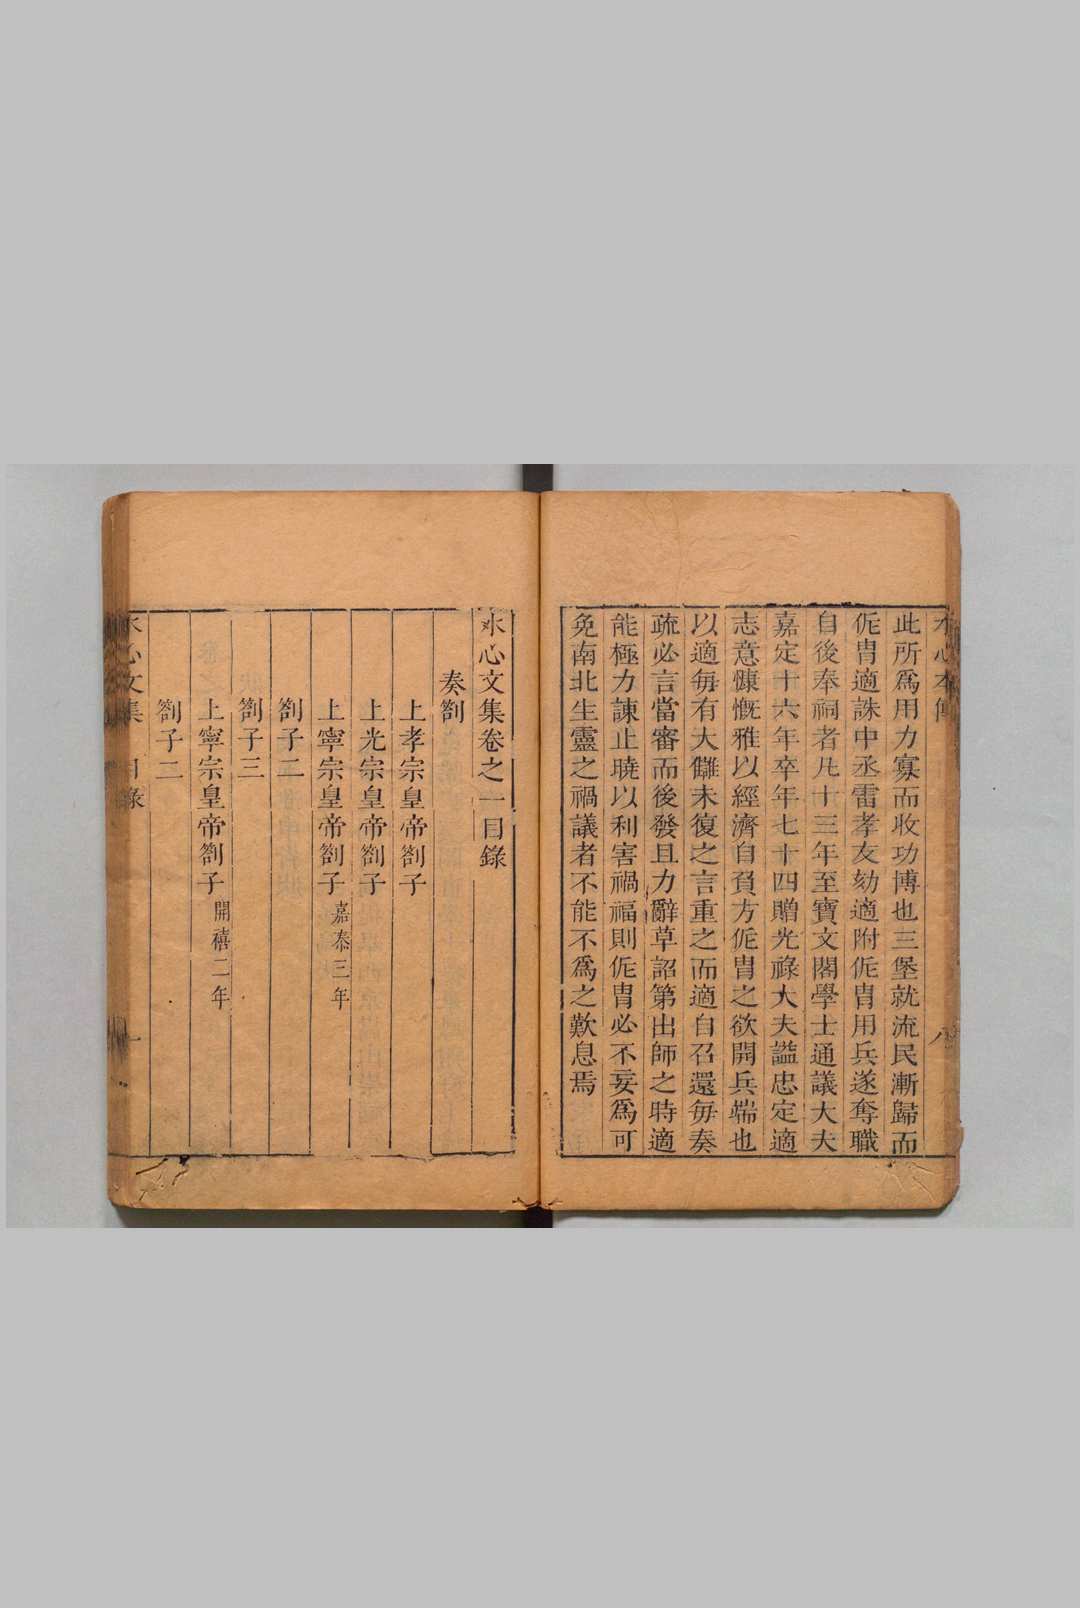 水心本傳
八
此所爲用力寡而收功博也三堡就流民漸歸而
侂胄適誅中丞雷孝友劾適附侂胄用兵遂奪職
自後奉祠者凡十三年至寶文閣學士通議大夫
嘉定十六年卒年七十四贈光祿大夫謚忠定適
志意慷慨雅以經濟自負方侂胄之欲開兵端也
以適每有大讎未復之言重之而適自召還每奏
疏必言當審而後發且力辭草詔第出師之時適
能極力諫止曉以利害禍福則侂胄必不妄爲可
免南北生靈之禍議者不能不爲之歎息焉
水心文集卷之一目錄
奏劄
上孝宗皇帝劄子
上光宗皇帝劄子
上寧宗皇帝劄子 嘉泰三年
劄子二
劄子三
上寧宗皇帝劄子 開禧二年
劄子二
水心文集 目錄
一